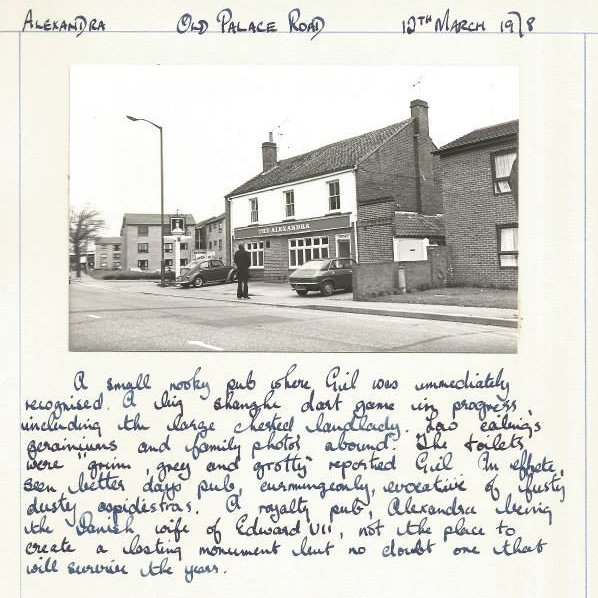 ALEXANDRA OLD PALACE ROAD 12TH MARCH 1978
THE ALEXANDRA
A small nooky pub where Gil was immediately
recognised. A big shanghai dart game in progress,
including the large chested landlady. Low ceilings
geraniums and family photos abound. The toilets
were "grim, grey and grotty" reported Gil. An effete,
seen better days pub, curmungeonly, evocative of fusty
dusty aspidestras. A royalty pub, Alexandra being
the Danish wife of Edward VII, not the place to
create a lasting monument but no doubt one that
will survive the years.